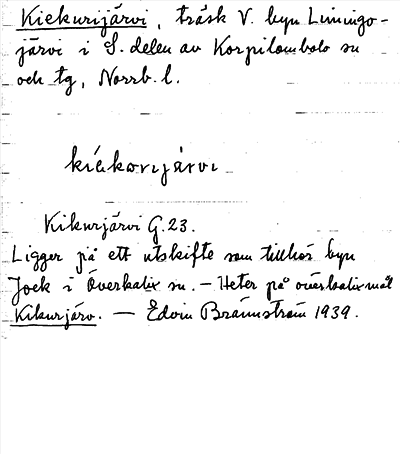 Kiekurijärvi, träsk V. byn Limingo-
järvi i S. delen av Korpilombolo sn
och tg, Norrb. l.
kiekorijärvi
Kikurjärvi G.23.
Ligger på ett utskifte som tillhör byn
Jock i Överkalix sn. – Heter på överkalixmål
Kikurjärv. — Edvin Brännström 1939.